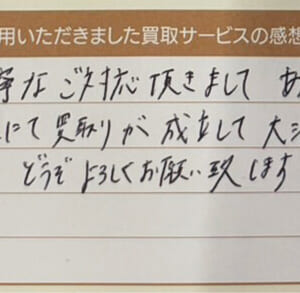 用いただきました買取サービスの感想
寧なご対応頂きまして
にて買取りが成立して大
どうぞよろしくお願い致します